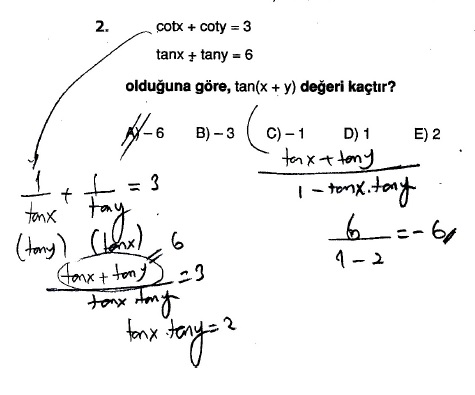 2. cotx + coty = 3
tanx + tany = 6
olduğuna göre, tan(x + y) değeri kaçtır?
A) – 6 B) – 3 C) – 1 D) 1 E) 2
1/tanx + 1/tany = 3
(tany) (tanx)
tanx + tany = 6
(tanx + tany)/(tanx tany) = 3
tanx . tany = 2
(tanx + tany)/(1 - tanx.tany)
6/(1 - 2) = - 6